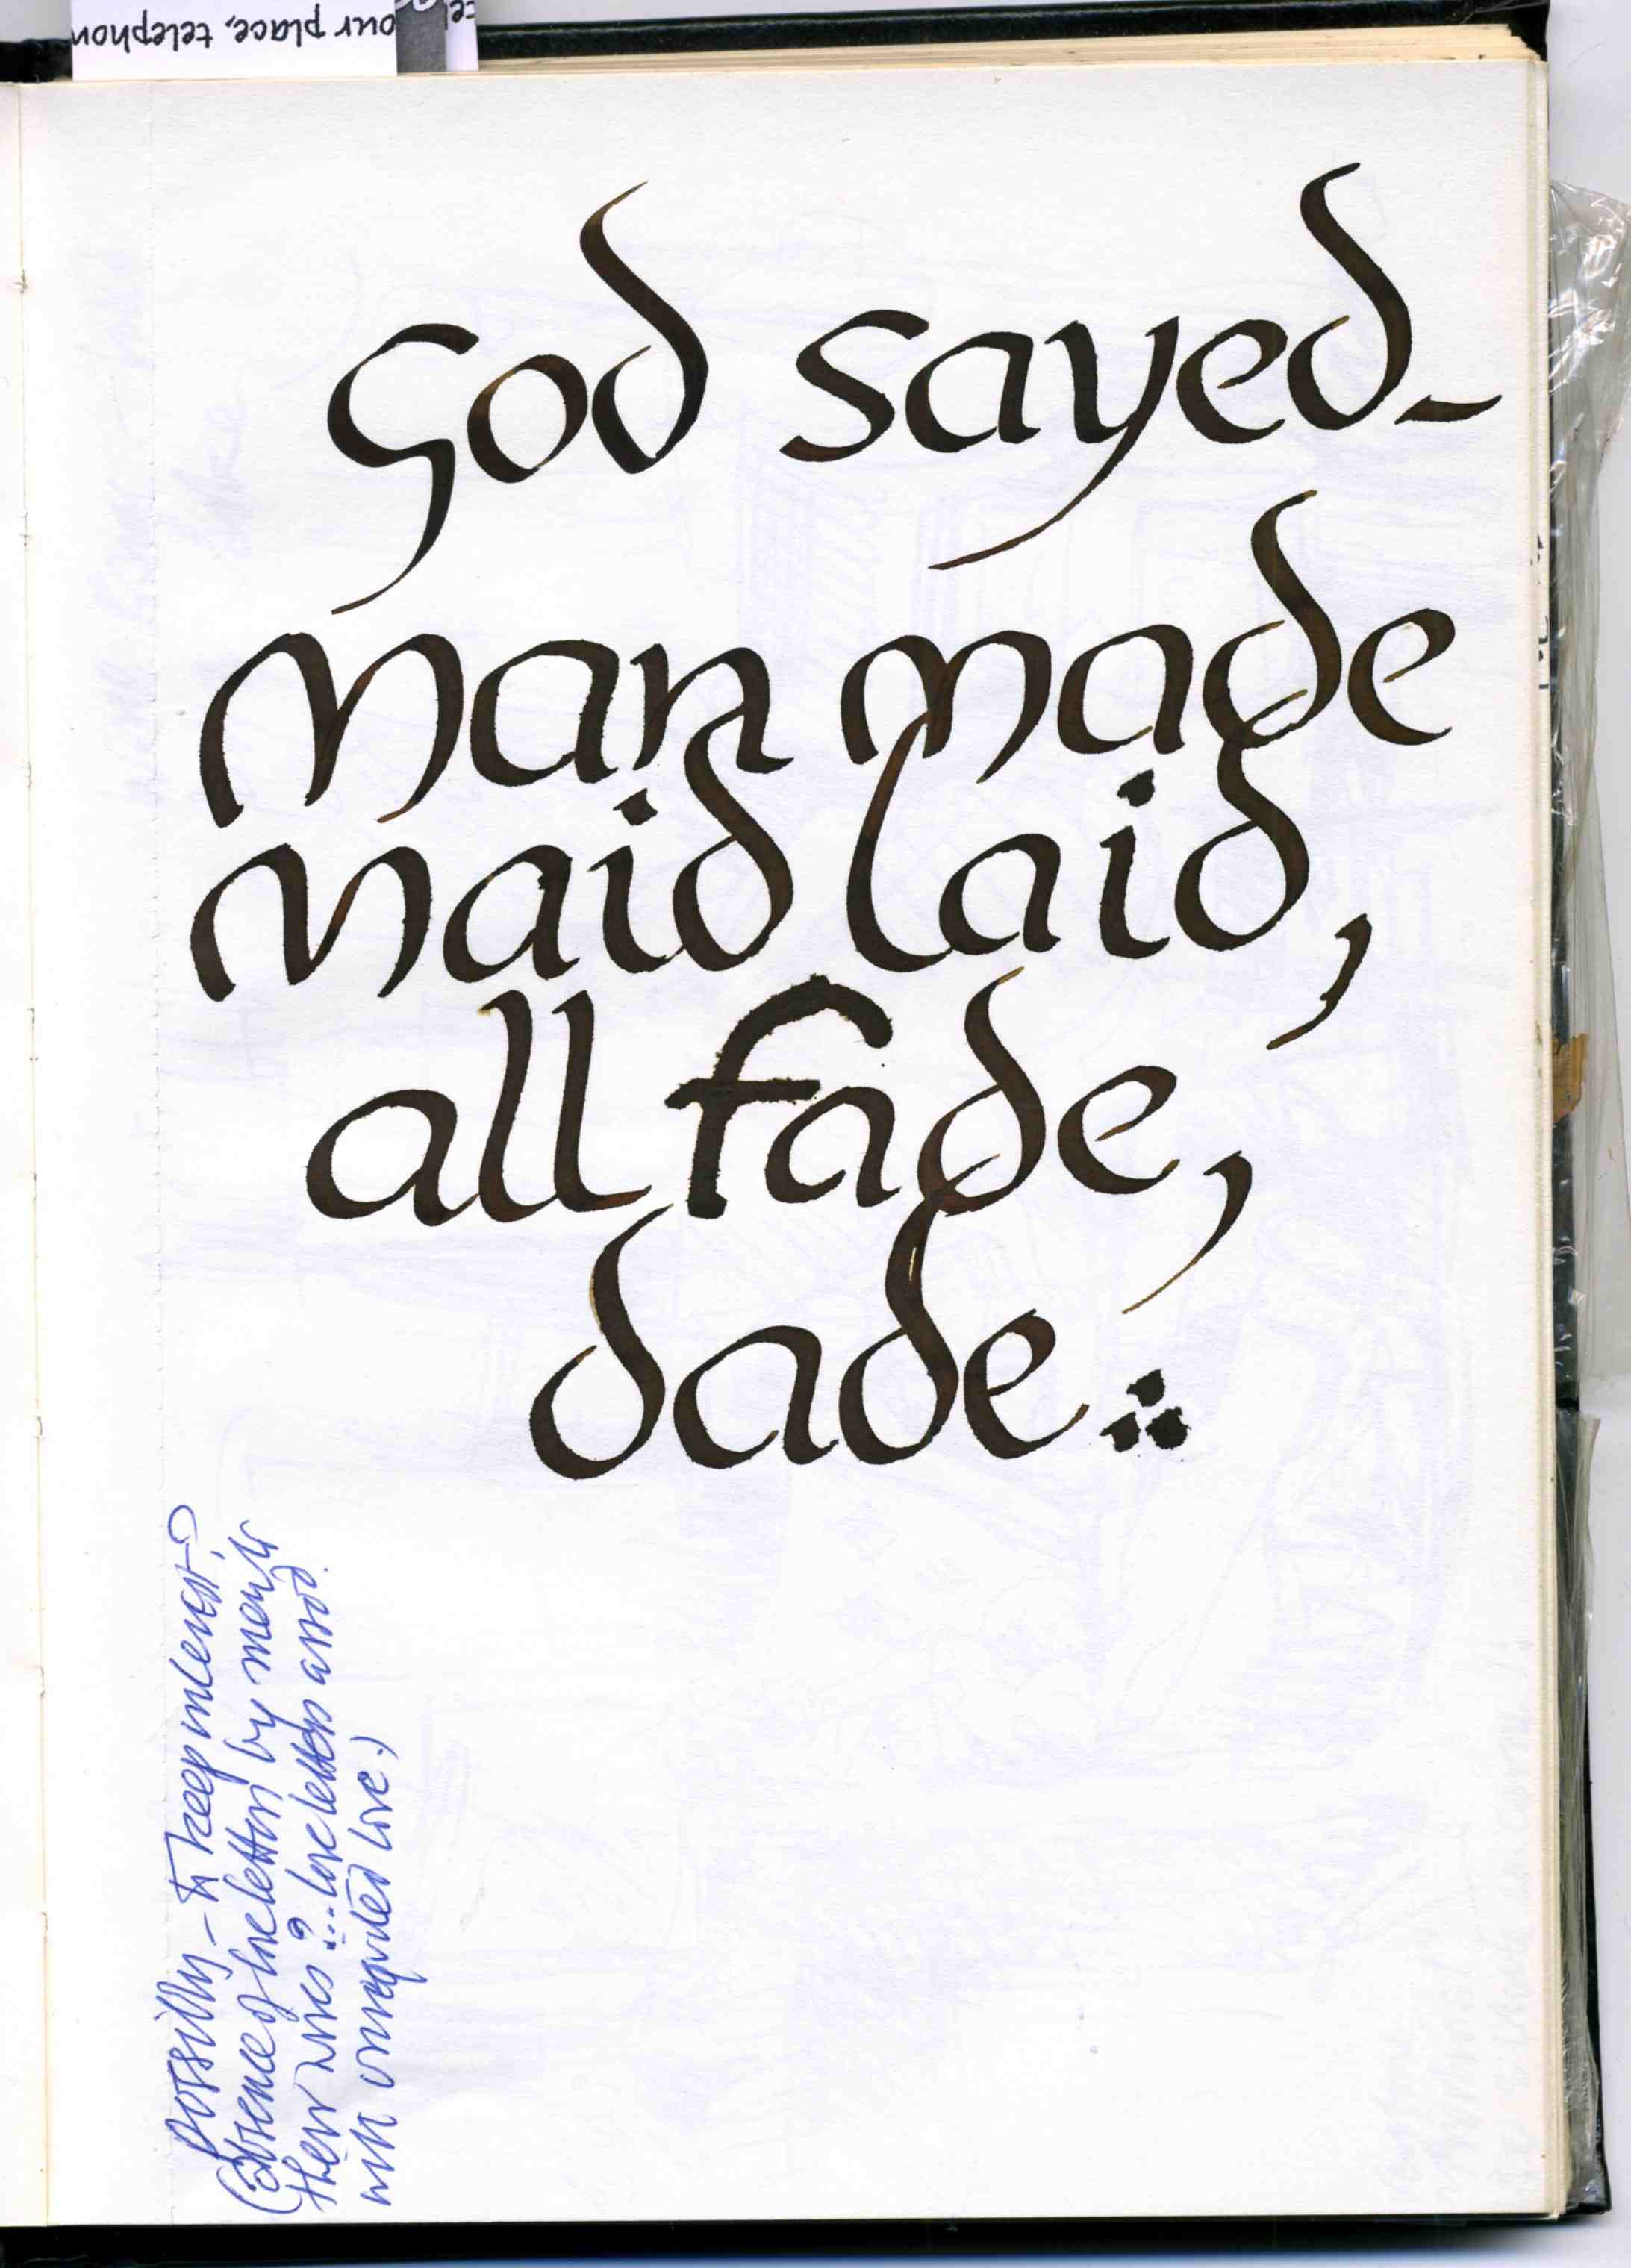 our place, telephon
God sayed–
Man made
Maid laid,
all fade,
dade∴
possibly – to keep in
(absence of love letters by men to
their wives? ... love letters and
with unrequited love.)